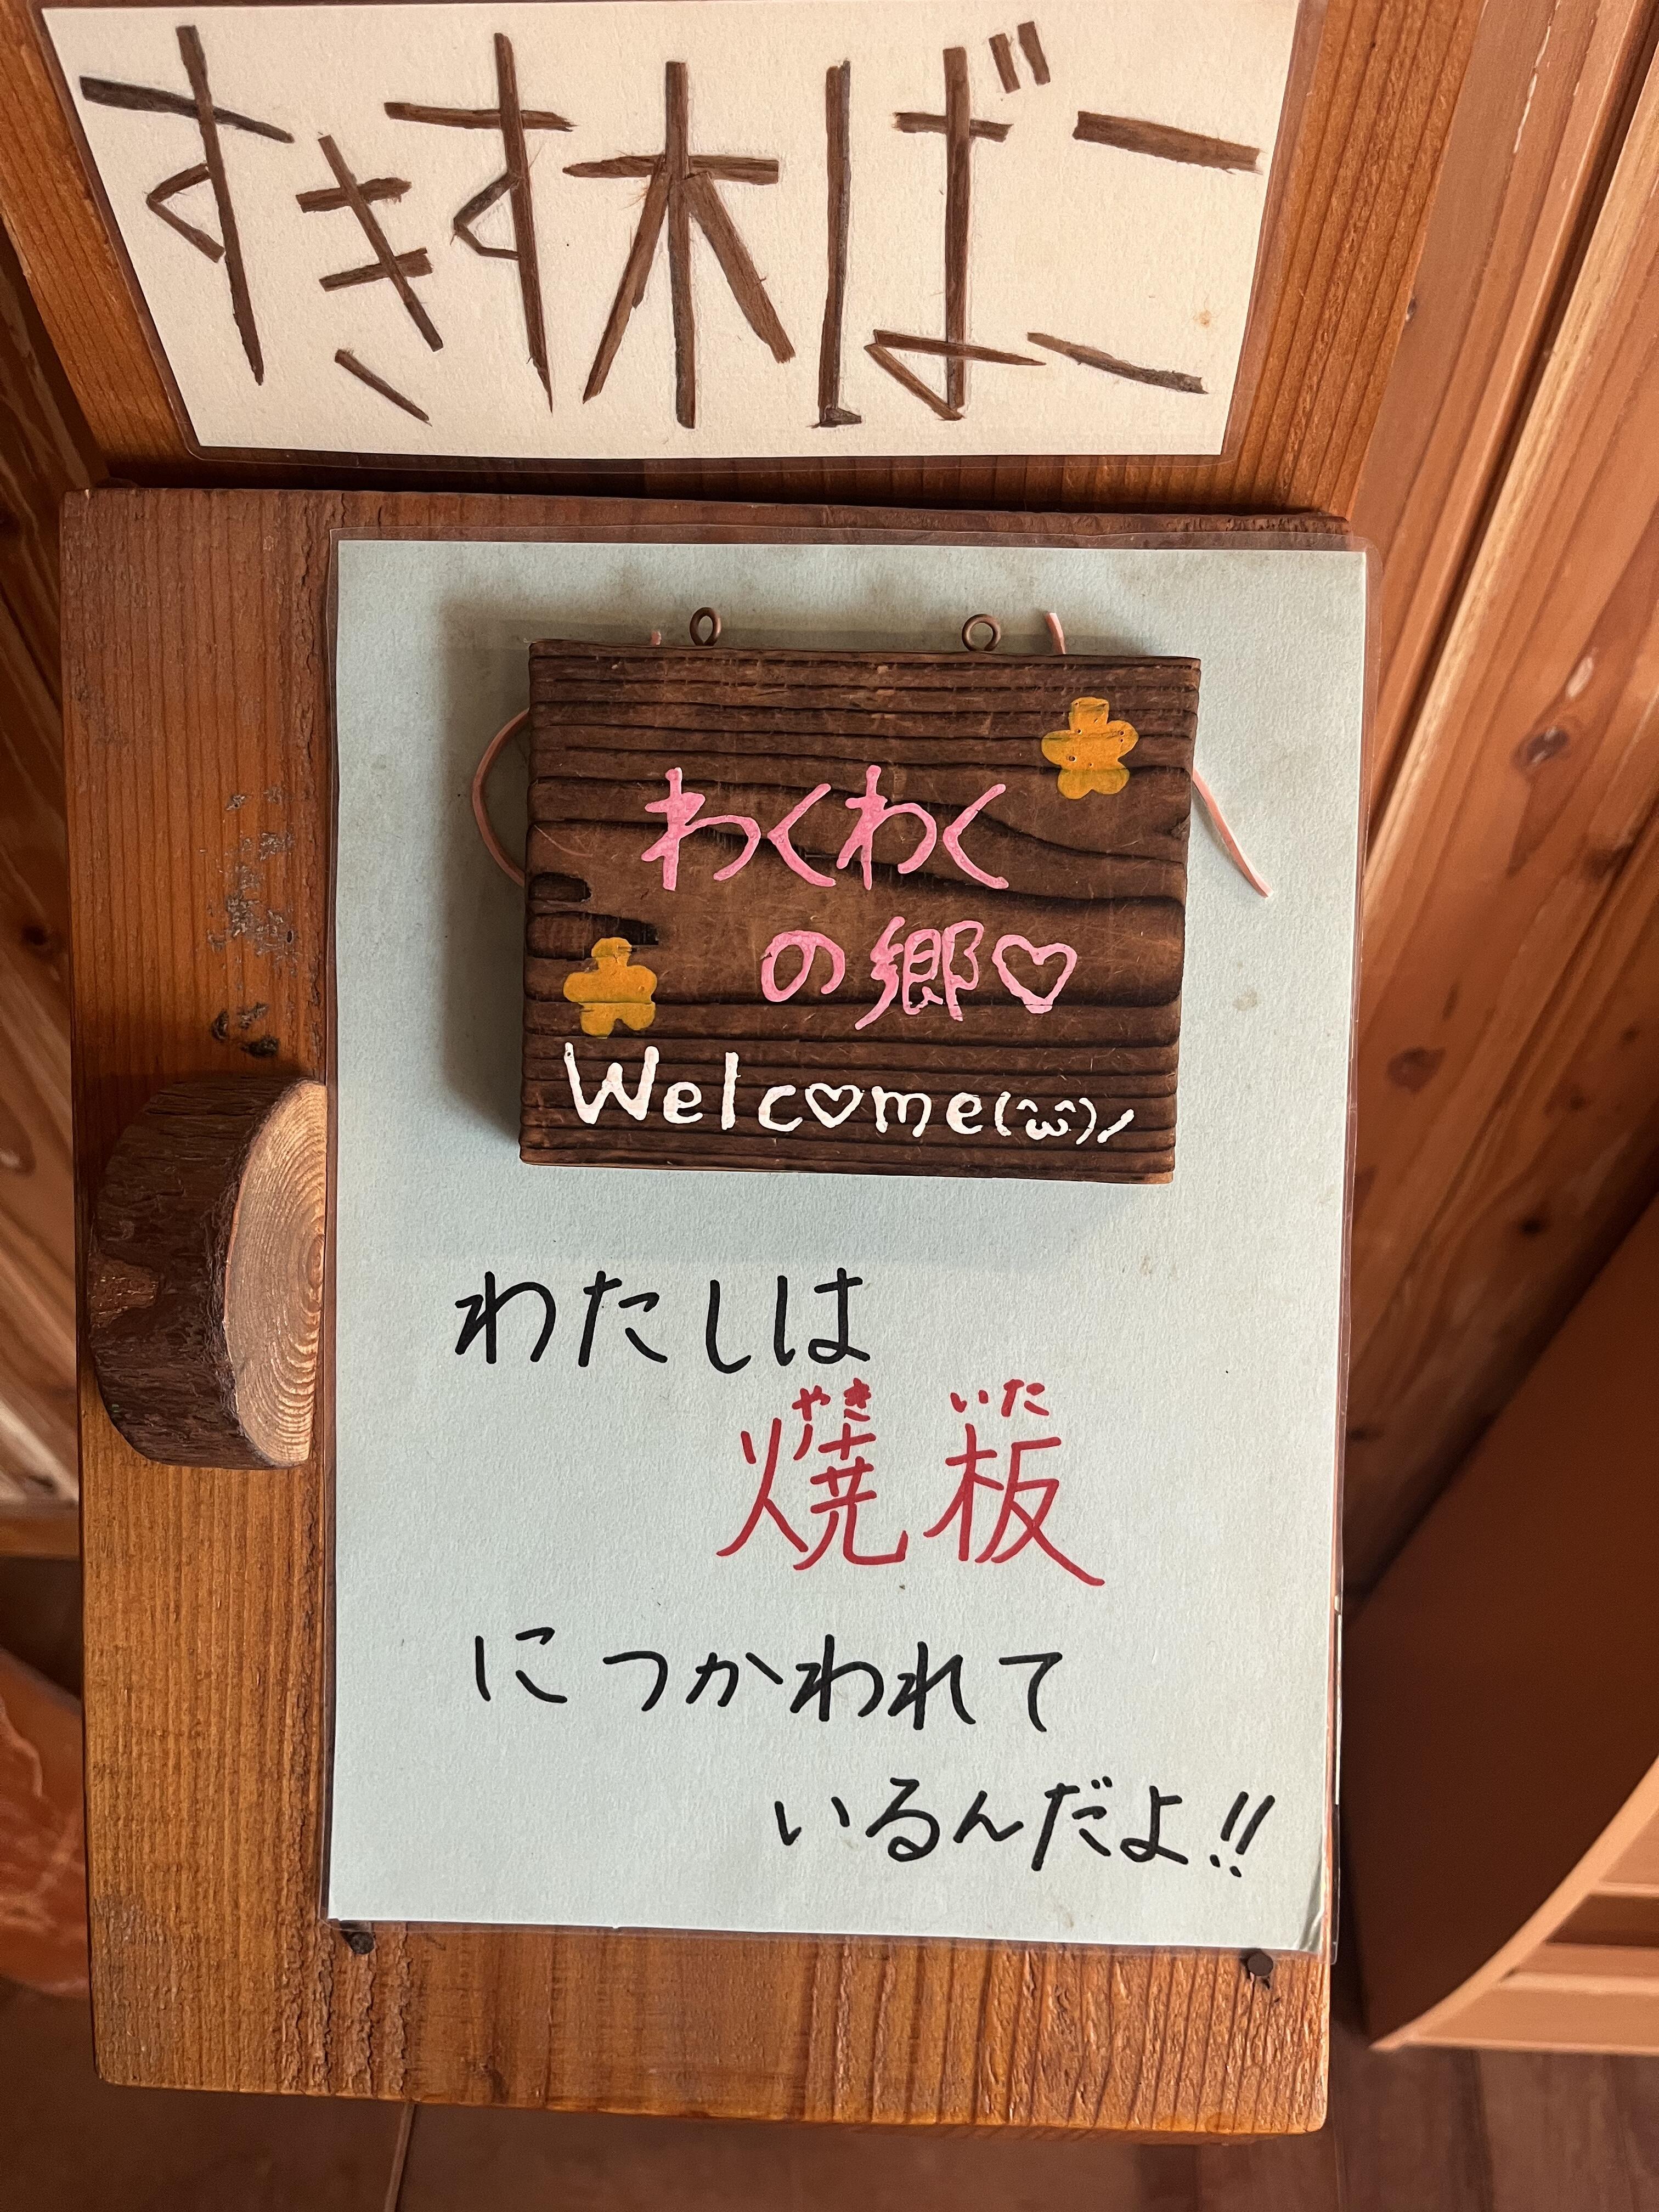 すきす木ばこ
わくわく
の郷♡
Welc♡me(^ω^)/
わたしは
やき いた
焼板
につかわれて
いるんだよ!!